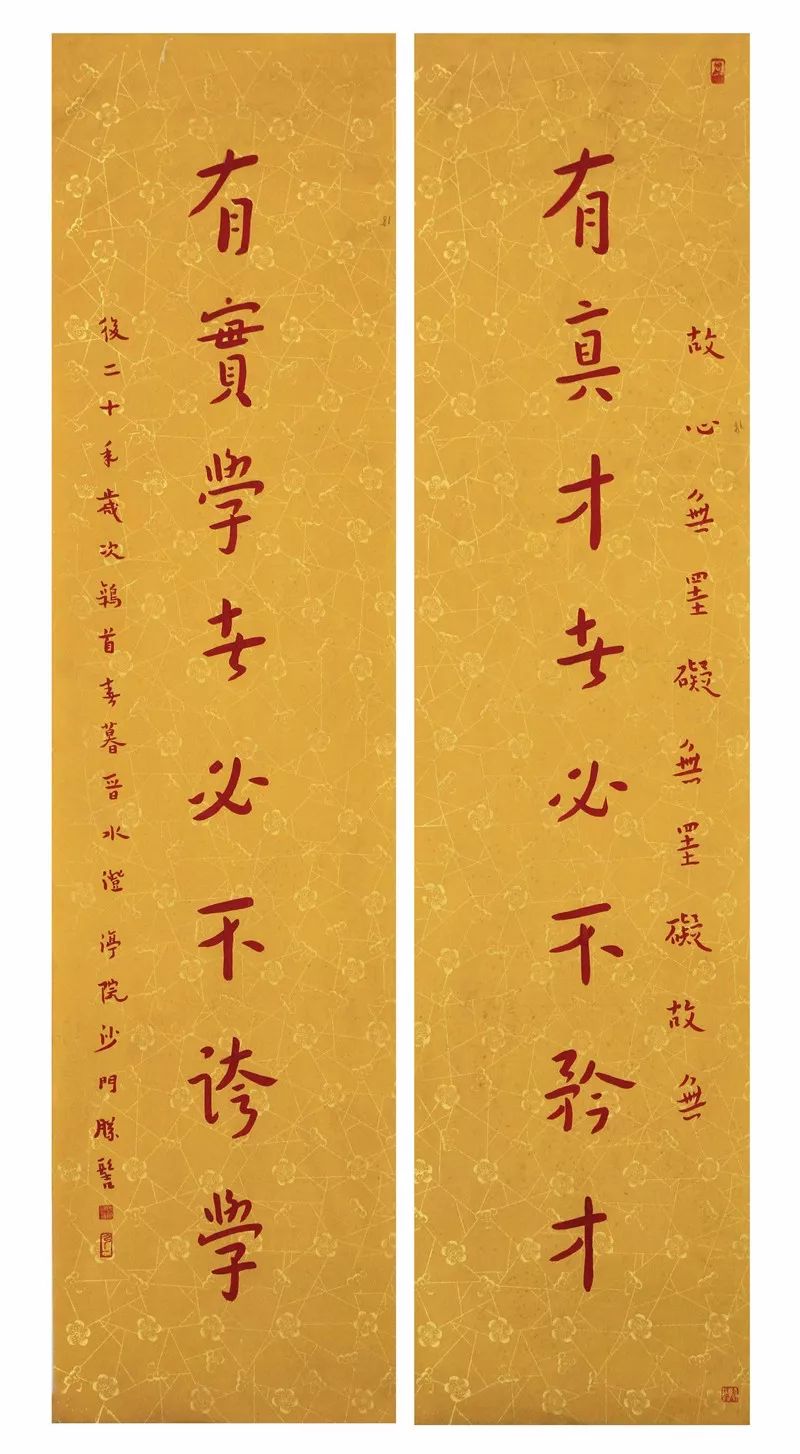 故心無罣礙無罣礙故無
有真才者必不矜才
有實學者必不誇學
後二十年歲次鶉首春暮晉水澄渟院沙門勝髻